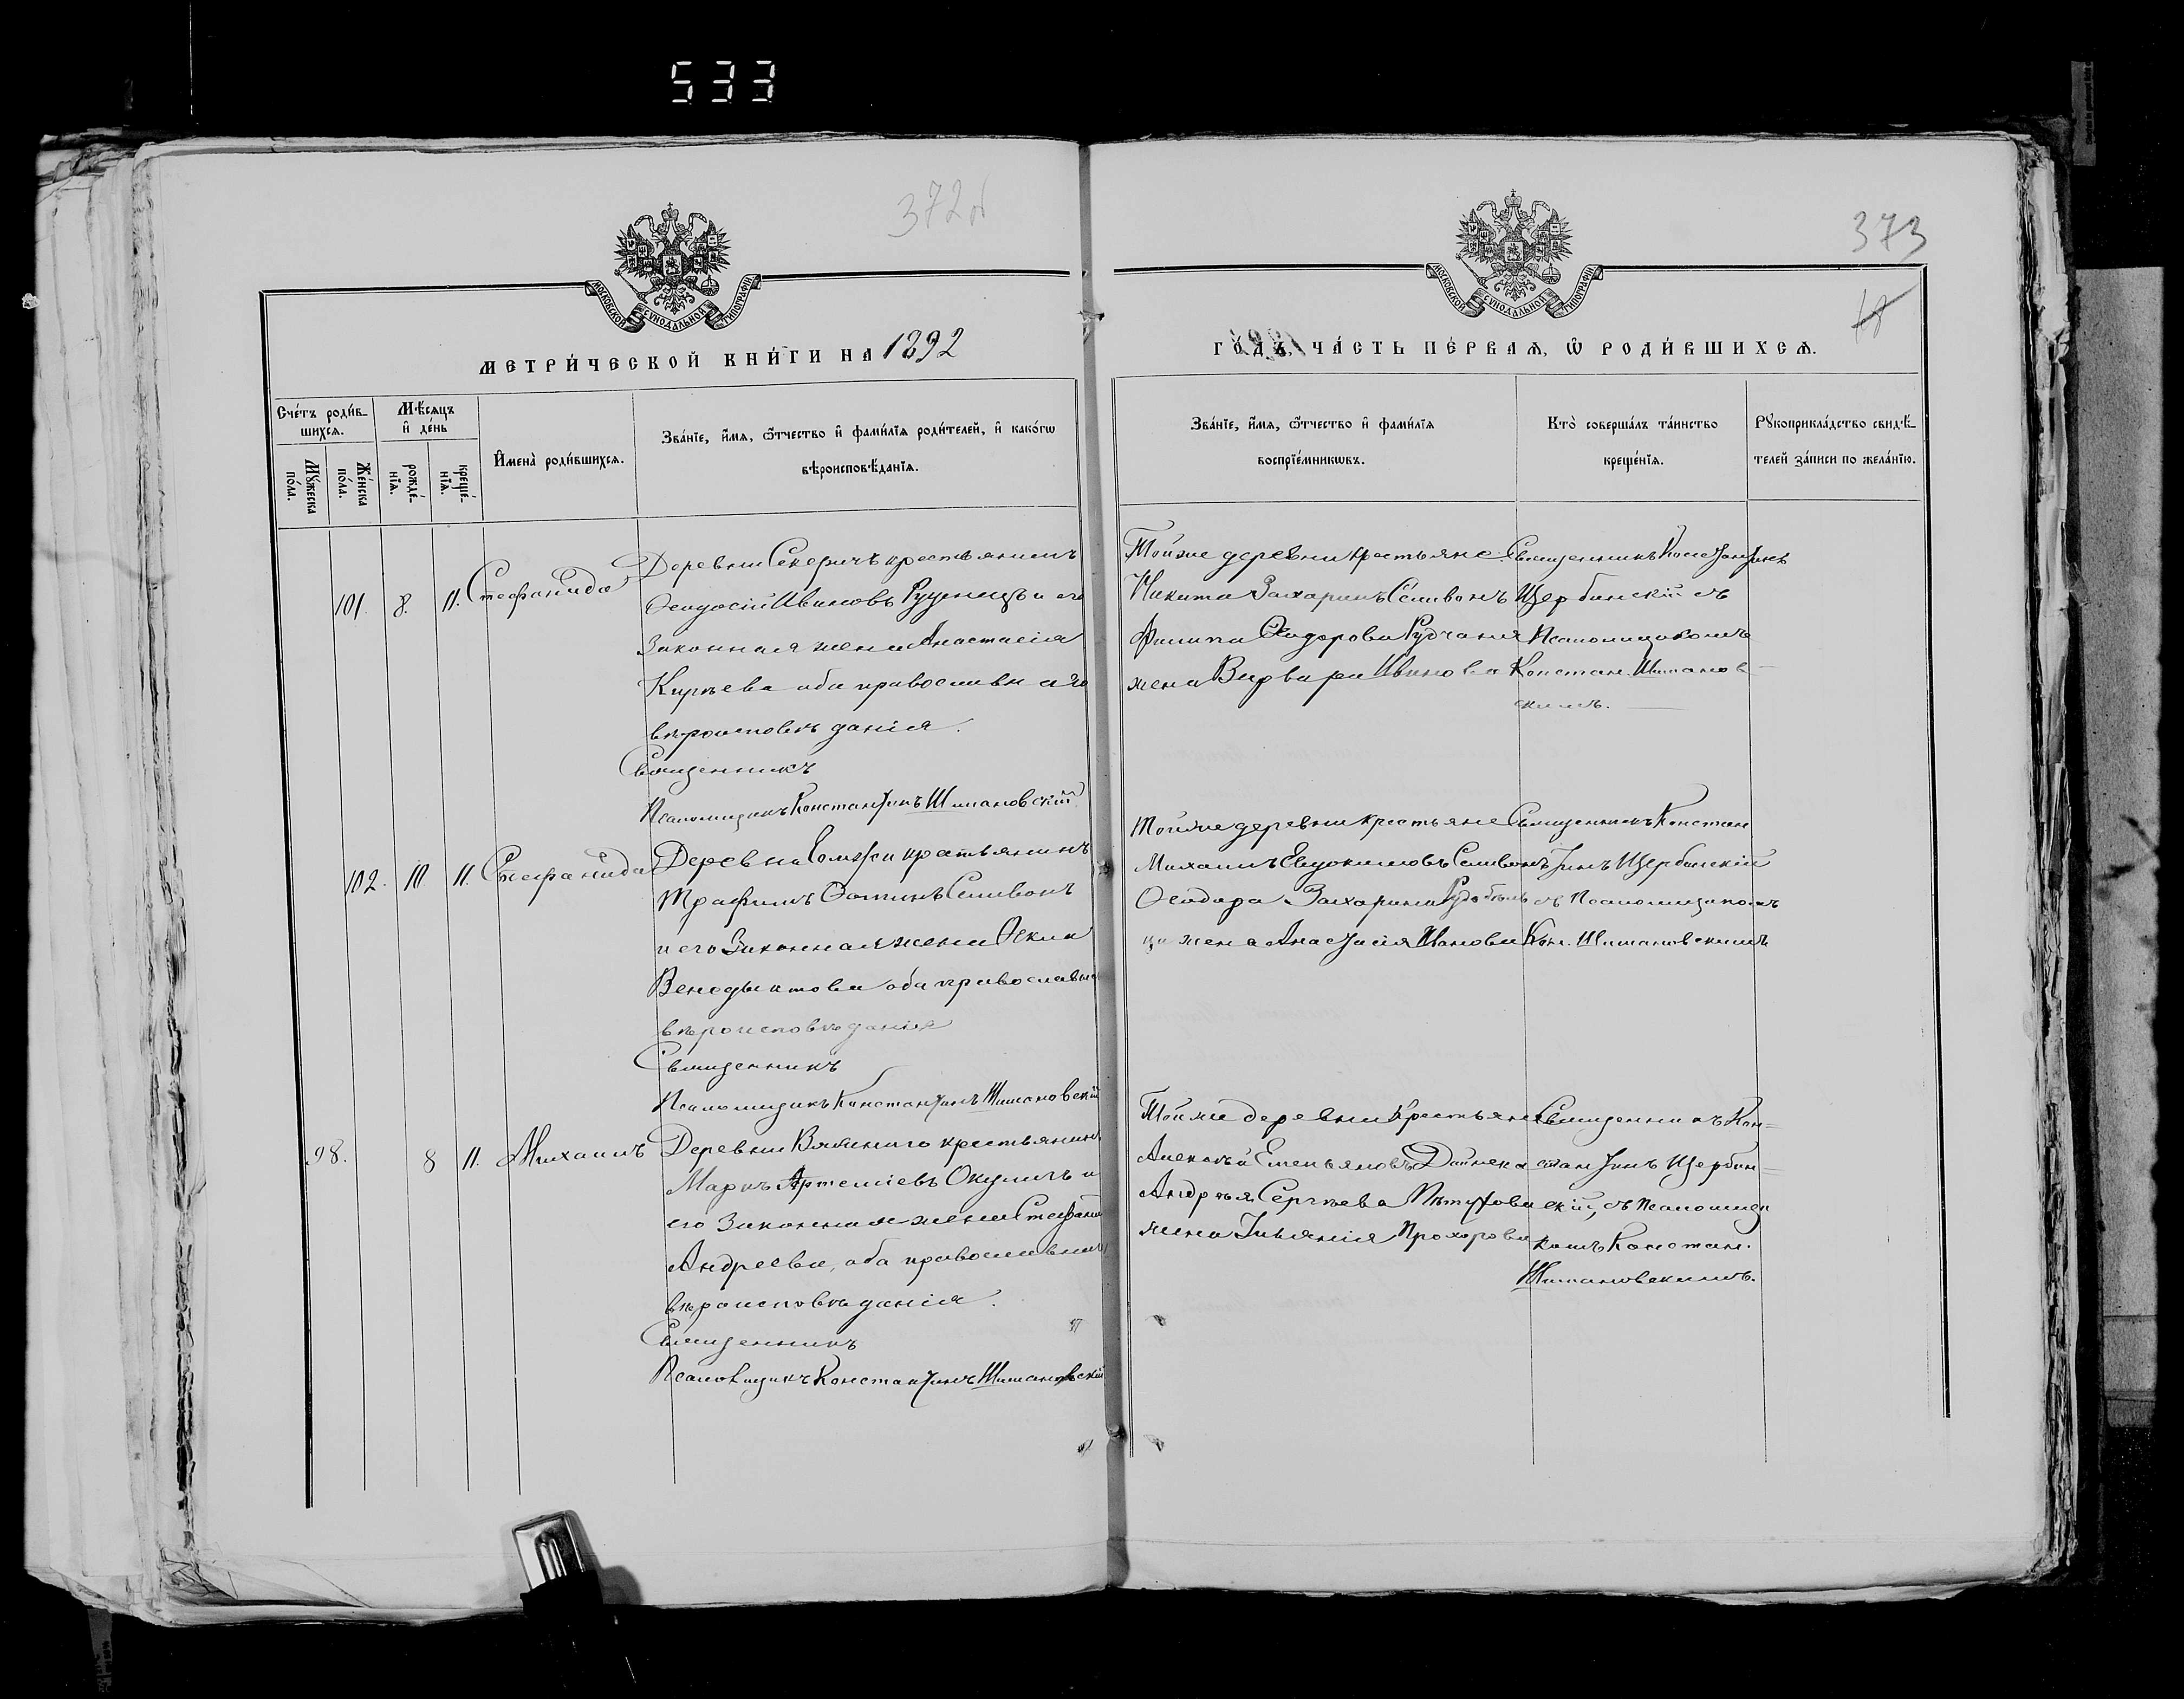 533
372об
373
МОСКОВСКОЙ СѴНОДАЛЬНОЙ ТИПОГРАФІИ
МОСКОВСКОЙ СѴНОДАЛЬНОЙ ТИПОГРАФІИ
МЕТРИ́ЧЕСКОЙ КНИ́ГИ НА 1892
ГО́ДЪ, ЧА́СТЬ ПЕ́РВАѦ, Ѡ РОДИ́ВШИХСѦ.
Сче́тъ роди́в-
шихсѧ.
Мꙋ́жеска по́ла.
Же́нска по́ла.
Мѣ́сѧцъ и де́нь
рожде́-нїѧ.
креще́-нїѧ.
И҆мена̀ роди́вшихсѧ.
Зва́нїе, и҆́мѧ, ѻ҆́тчество и҆ фами́лїѧ роди́телей, и҆ како́гѡ
вѣроисповѣ́данїѧ.
Зва́нїе, и҆́мѧ, ѻ҆́тчество и҆ фами́лїѧ
воспрїе́мникѡвъ.
Кто̀ соверша́лъ та́инство
креще́нїѧ.
Рꙋкоприкла́дство свидѣ́-
телей за́писи по жела́нїю.
101. 8. 11. Стефанида
Деревни Секеричъ крестьянинъ
Феодосій Ивановъ и его
законная жена Анастасія
Киріева оба православнаго
вѣроисповѣданія.
Священникъ
Псаломщикъ Константинъ Шимановскій
Тойже деревни крестьяне
Никита Захаринъ Селивонъ
Филипа Сидорова
жена Варвара Иванова
Священникъ Константинъ
Щербинскій съ
Псаломщикомъ
Констан. Шиманов-
скимъ.
102. 10 11. Стефанида
Деревни крестьянинъ
Трофимъ Селивонъ
и его законная жена
Бенедыктова оба православна
вѣроисповѣданія
Священникъ
Псаломщикъ Константинъ Шимановскій
Тойже деревни крестьяне
Михаилъ Евдокимовъ Селивонъ
Феодора Захарина
жена Анастасія Иванова
Священникъ Констан
тинъ Щербинскій
съ Псаломщикомъ
Кон. Шимановскимъ
98. 8 11. Михаилъ
Деревни крестьянинъ
Маркъ Артеміевъ Окуличъ и
его законная жена Стефани
Андреева, оба православна
вѣроисповѣданія.
Священникъ
Псаломщикъ Константинъ Шимановскій
Тойже деревни крестьяне
Алексѣй Емельяновъ Дайнека
Андрѣя Сергѣева
жена Іуліанія Прохорова
Священникъ Кон-
стантинъ Щербин-
скій, съ псаломщи
комъ Констан.
Шимановскимъ.